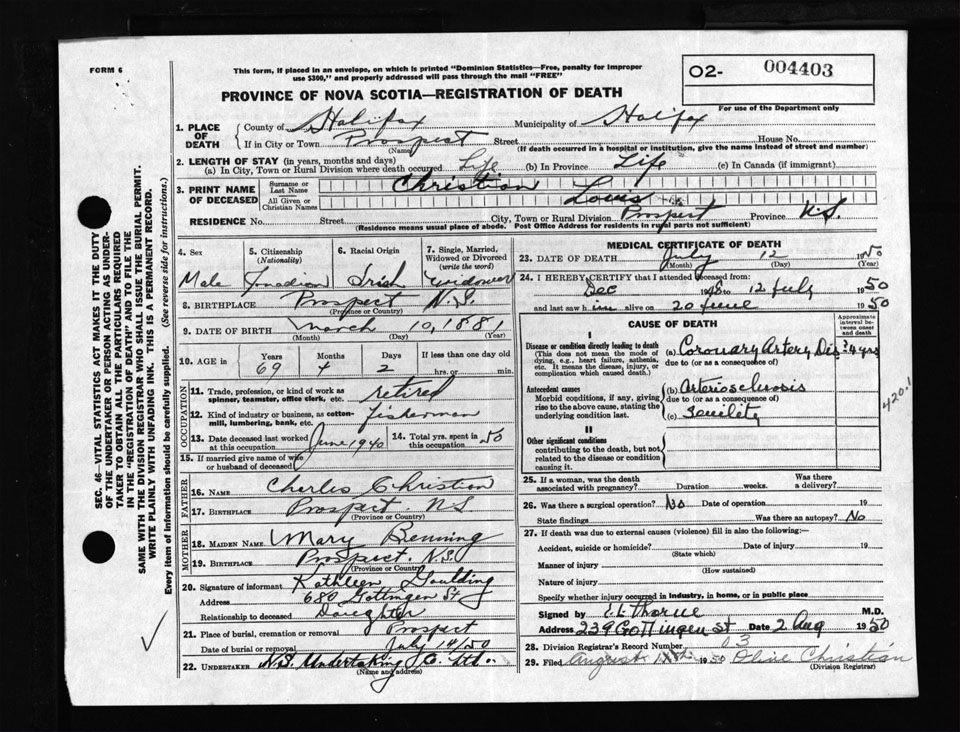 FORM 6
This form, if placed in an envelope, on which is printed "Dominion Statistics—Free, penalty for improper
use $300," and properly addressed will pass through the mail "FREE"
O2- 004403
For use of the Department only
PROVINCE OF NOVA SCOTIA—REGISTRATION OF DEATH
1. PLACE OF DEATH
County of Halifax Municipality of Halifax
If in City or Town Prospect Street House No.
(Name) (If death occurred in a hospital or institution, give the name instead of street and number)
2. LENGTH OF STAY (in years, months and days)
(a) In City, Town or Rural Division where death occurred Life (b) In Province Life (c) In Canada (if immigrant)
3. PRINT NAME OF DECEASED
Surname or Last Name Christian
All Given or Christian Names Louis
RESIDENCE No. Street City, Town or Rural Division Prospect Province N.S.
(Residence means usual place of abode. Post Office Address for residents in rural parts not sufficient)
4. Sex 5. Citizenship (Nationality) 6. Racial Origin 7. Single, Married, Widowed or Divorced (write the word)
Male Canadian Irish Widower
8. BIRTHPLACE Prospect N.S.
(Province or Country)
9. DATE OF BIRTH March 10, 1881
(Month) (Day) (Year)
10. AGE in Years Months Days If less than one day old
69 4 2 hrs. or min.
OCCUPATION
11. Trade, profession, or kind of work as spinner, teamster, office clerk, etc. retired
12. Kind of industry or business, as cotton-mill, lumbering, bank, etc. fisherman
13. Date deceased last worked at this occupation June 1940 14. Total yrs. spent in this occupation 50
15. If married give name of wife or husband of deceased
FATHER
16. NAME Charles Christian
17. BIRTHPLACE Prospect. N.S.
(Province or Country)
MOTHER
18. MAIDEN NAME Mary
19. BIRTHPLACE Prospect. N.S.
(Province or Country)
20. Signature of informant Kathleen Goulding
Address 680 Gottingen St
Relationship to deceased Daughter
21. Place of burial, cremation or removal Prospect
Date of burial or removal July 14/50
22. UNDERTAKER N.S. Undertaking Co. Ltd.
(Name and address)
MEDICAL CERTIFICATE OF DEATH
23. DATE OF DEATH July 12 1950
(Month) (Day) (Year)
24. I HEREBY CERTIFY that I attended deceased from:
Dec 1948 to 12 July 1950
and last saw him alive on 20 June 1950
CAUSE OF DEATH
Approximate interval between onset and death
I
Disease or condition directly leading to death
(This does not mean the mode of dying, e.g., heart failure, asthenia, etc. It means the disease, injury, or complication which caused death.)
(a) Coronary Artery Dis ? 4 yrs
due to (or as a consequence of)
Antecedent causes
Morbid conditions, if any, giving rise to the above cause, stating the underlying condition last.
(b) Arteriosclerosis
due to (or as a consequence of)
(c) Senility
420.1
II
Other significant conditions
contributing to the death, but not related to the disease or condition causing it.
25. If a woman, was the death associated with pregnancy? Duration weeks. Was there a delivery?
26. Was there a surgical operation? No Date of operation 19
State findings Was there an autopsy? No
27. If death was due to external causes (violence) fill in also the following:—
Accident, suicide or homicide? Date of injury 19
(State which)
Manner of injury
(How sustained)
Nature of injury
Specify whether injury occurred in industry, in home, or in public place
Signed by Thorne M.D.
Address 239 Gottingen St Date 2 Aug 1950
28. Division Registrar's Record Number 03
29. Filed August 1950 Olive Christian
(Division Registrar)
SEC. 46—VITAL STATISTICS ACT MAKES IT THE DUTY
OF THE UNDERTAKER OR PERSON ACTING AS UNDER-
TAKER TO OBTAIN ALL THE PARTICULARS REQUIRED
IN THE "REGISTRATION OF DEATH" AND TO FILE THE
SAME WITH THE DIVISION REGISTRAR WHO SHALL ISSUE THE BURIAL PERMIT.
WRITE PLAINLY WITH UNFADING INK. THIS IS A PERMANENT RECORD.
Every item of information should be carefully supplied. (See reverse side for instructions.)